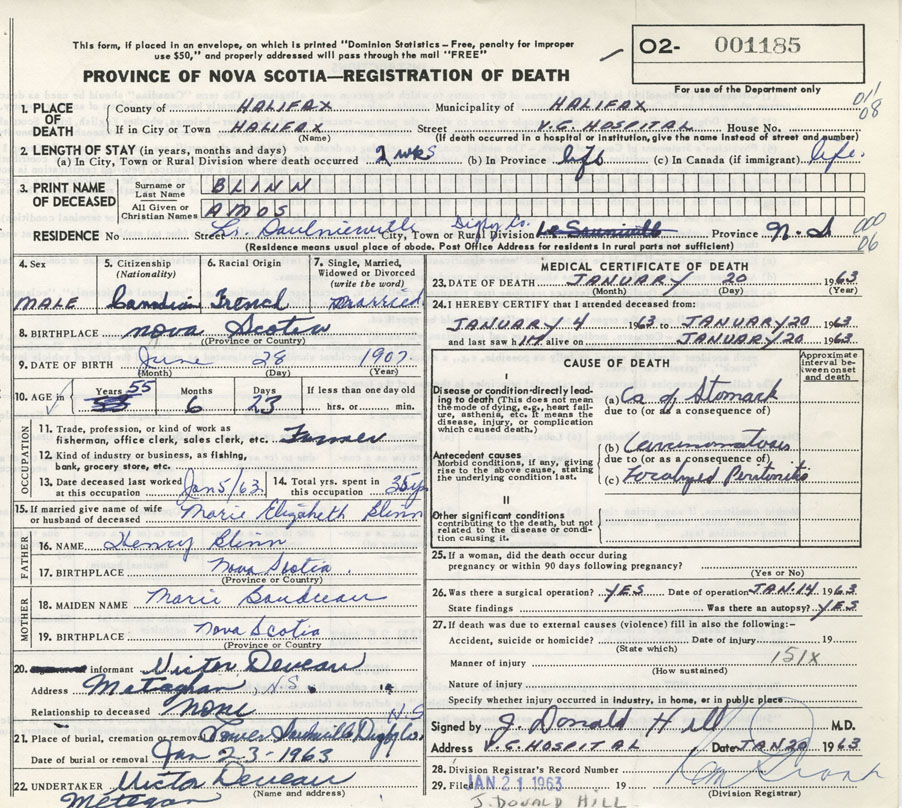 This form, if placed in an envelope, on which is printed "Dominion Statistics - Free, penalty for improper
use $50," and properly addressed will pass through the mail "FREE"
O2- 001185
For use of the Department only
PROVINCE OF NOVA SCOTIA—REGISTRATION OF DEATH
011
08
1. PLACE OF DEATH
County of HALIFAX Municipality of HALIFAX
If in City or Town HALIFAX Street V.G. HOSPITAL House No.
(Name) (If death occurred in a hospital or institution, give the name instead of street and number)
2. LENGTH OF STAY (in years, months and days)
(a) In City, Town or Rural Division where death occurred 2 wks (b) In Province life (c) In Canada (if immigrant) life.
3. PRINT NAME OF DECEASED
Surname or Last Name BLINN
All Given or Christian Names AMOS
RESIDENCE No Street City, Town or Rural Division Digby Co. Province N.S
000
06
(Residence means usual place of abode. Post Office Address for residents in rural parts not sufficient)
4. Sex MALE
5. Citizenship (Nationality) Canadian
6. Racial Origin French
7. Single, Married, Widowed or Divorced (write the word) Married
8. BIRTHPLACE Nova Scotia
(Province or Country)
9. DATE OF BIRTH June 28 1907.
(Month) (Day) (Year)
10. AGE in Years 55 Months 6 Days 23 If less than one day old hrs. or min.
OCCUPATION
11. Trade, profession, or kind of work as fisherman, office clerk, sales clerk, etc. Farmer
12. Kind of industry or business, as fishing, bank, grocery store, etc.
13. Date deceased last worked at this occupation Jan 5/63
14. Total yrs. spent in this occupation 35 yrs
15. If married give name of wife or husband of deceased Marie Elizabeth Blinn
FATHER
16. NAME Henry Blinn
17. BIRTHPLACE Nova Scotia.
(Province or Country)
MOTHER
18. MAIDEN NAME Marie Boudreau
19. BIRTHPLACE Nova Scotia
(Province or Country)
20. informant Victor Deveau
Address Meteghan, N.S.
Relationship to deceased none
21. Place of burial, cremation or removal Digby Co. N.S
Date of burial or removal Jan 23-1963
22. UNDERTAKER Victor Deveau
(Name and address)
Metegan
MEDICAL CERTIFICATE OF DEATH
23. DATE OF DEATH JANUARY 20 1963
(Month) (Day) (Year)
24. I HEREBY CERTIFY that I attended deceased from:
JANUARY 4 1963 to JANUARY 20 1963
and last saw h IM alive on JANUARY 20 1963
CAUSE OF DEATH
Approximate interval between onset and death
I
Disease or condition directly leading to death (This does not mean the mode of dying, e.g., heart failure, asthenia, etc. It means the disease, injury, or complication which caused death.)
(a) Ca of Stomach
due to (or as a consequence of)
Antecedent causes
Morbid conditions, if any, giving rise to the above cause, stating the underlying condition last.
(b) Carcinomatosis
due to (or as a consequence of)
(c) Localized Peritonitis
II
Other significant conditions contributing to the death, but not related to the disease or condition causing it.
25. If a woman, did the death occur during pregnancy or within 90 days following pregnancy?
(Yes or No)
26. Was there a surgical operation? YES Date of operation JAN. 14 1963
State findings Was there an autopsy? YES
27. If death was due to external causes (violence) fill in also the following:-
Accident, suicide or homicide? Date of injury 19
(State which)
Manner of injury 151X
(How sustained)
Nature of injury
Specify whether injury occurred in industry, in home, or in public place
Signed by J. Donald Hill M.D.
Address V.G. HOSPITAL Date JAN 20 1963
28. Division Registrar's Record Number
29. Filed JAN 21 1963 19
(Division Registrar)
J. DONALD HILL